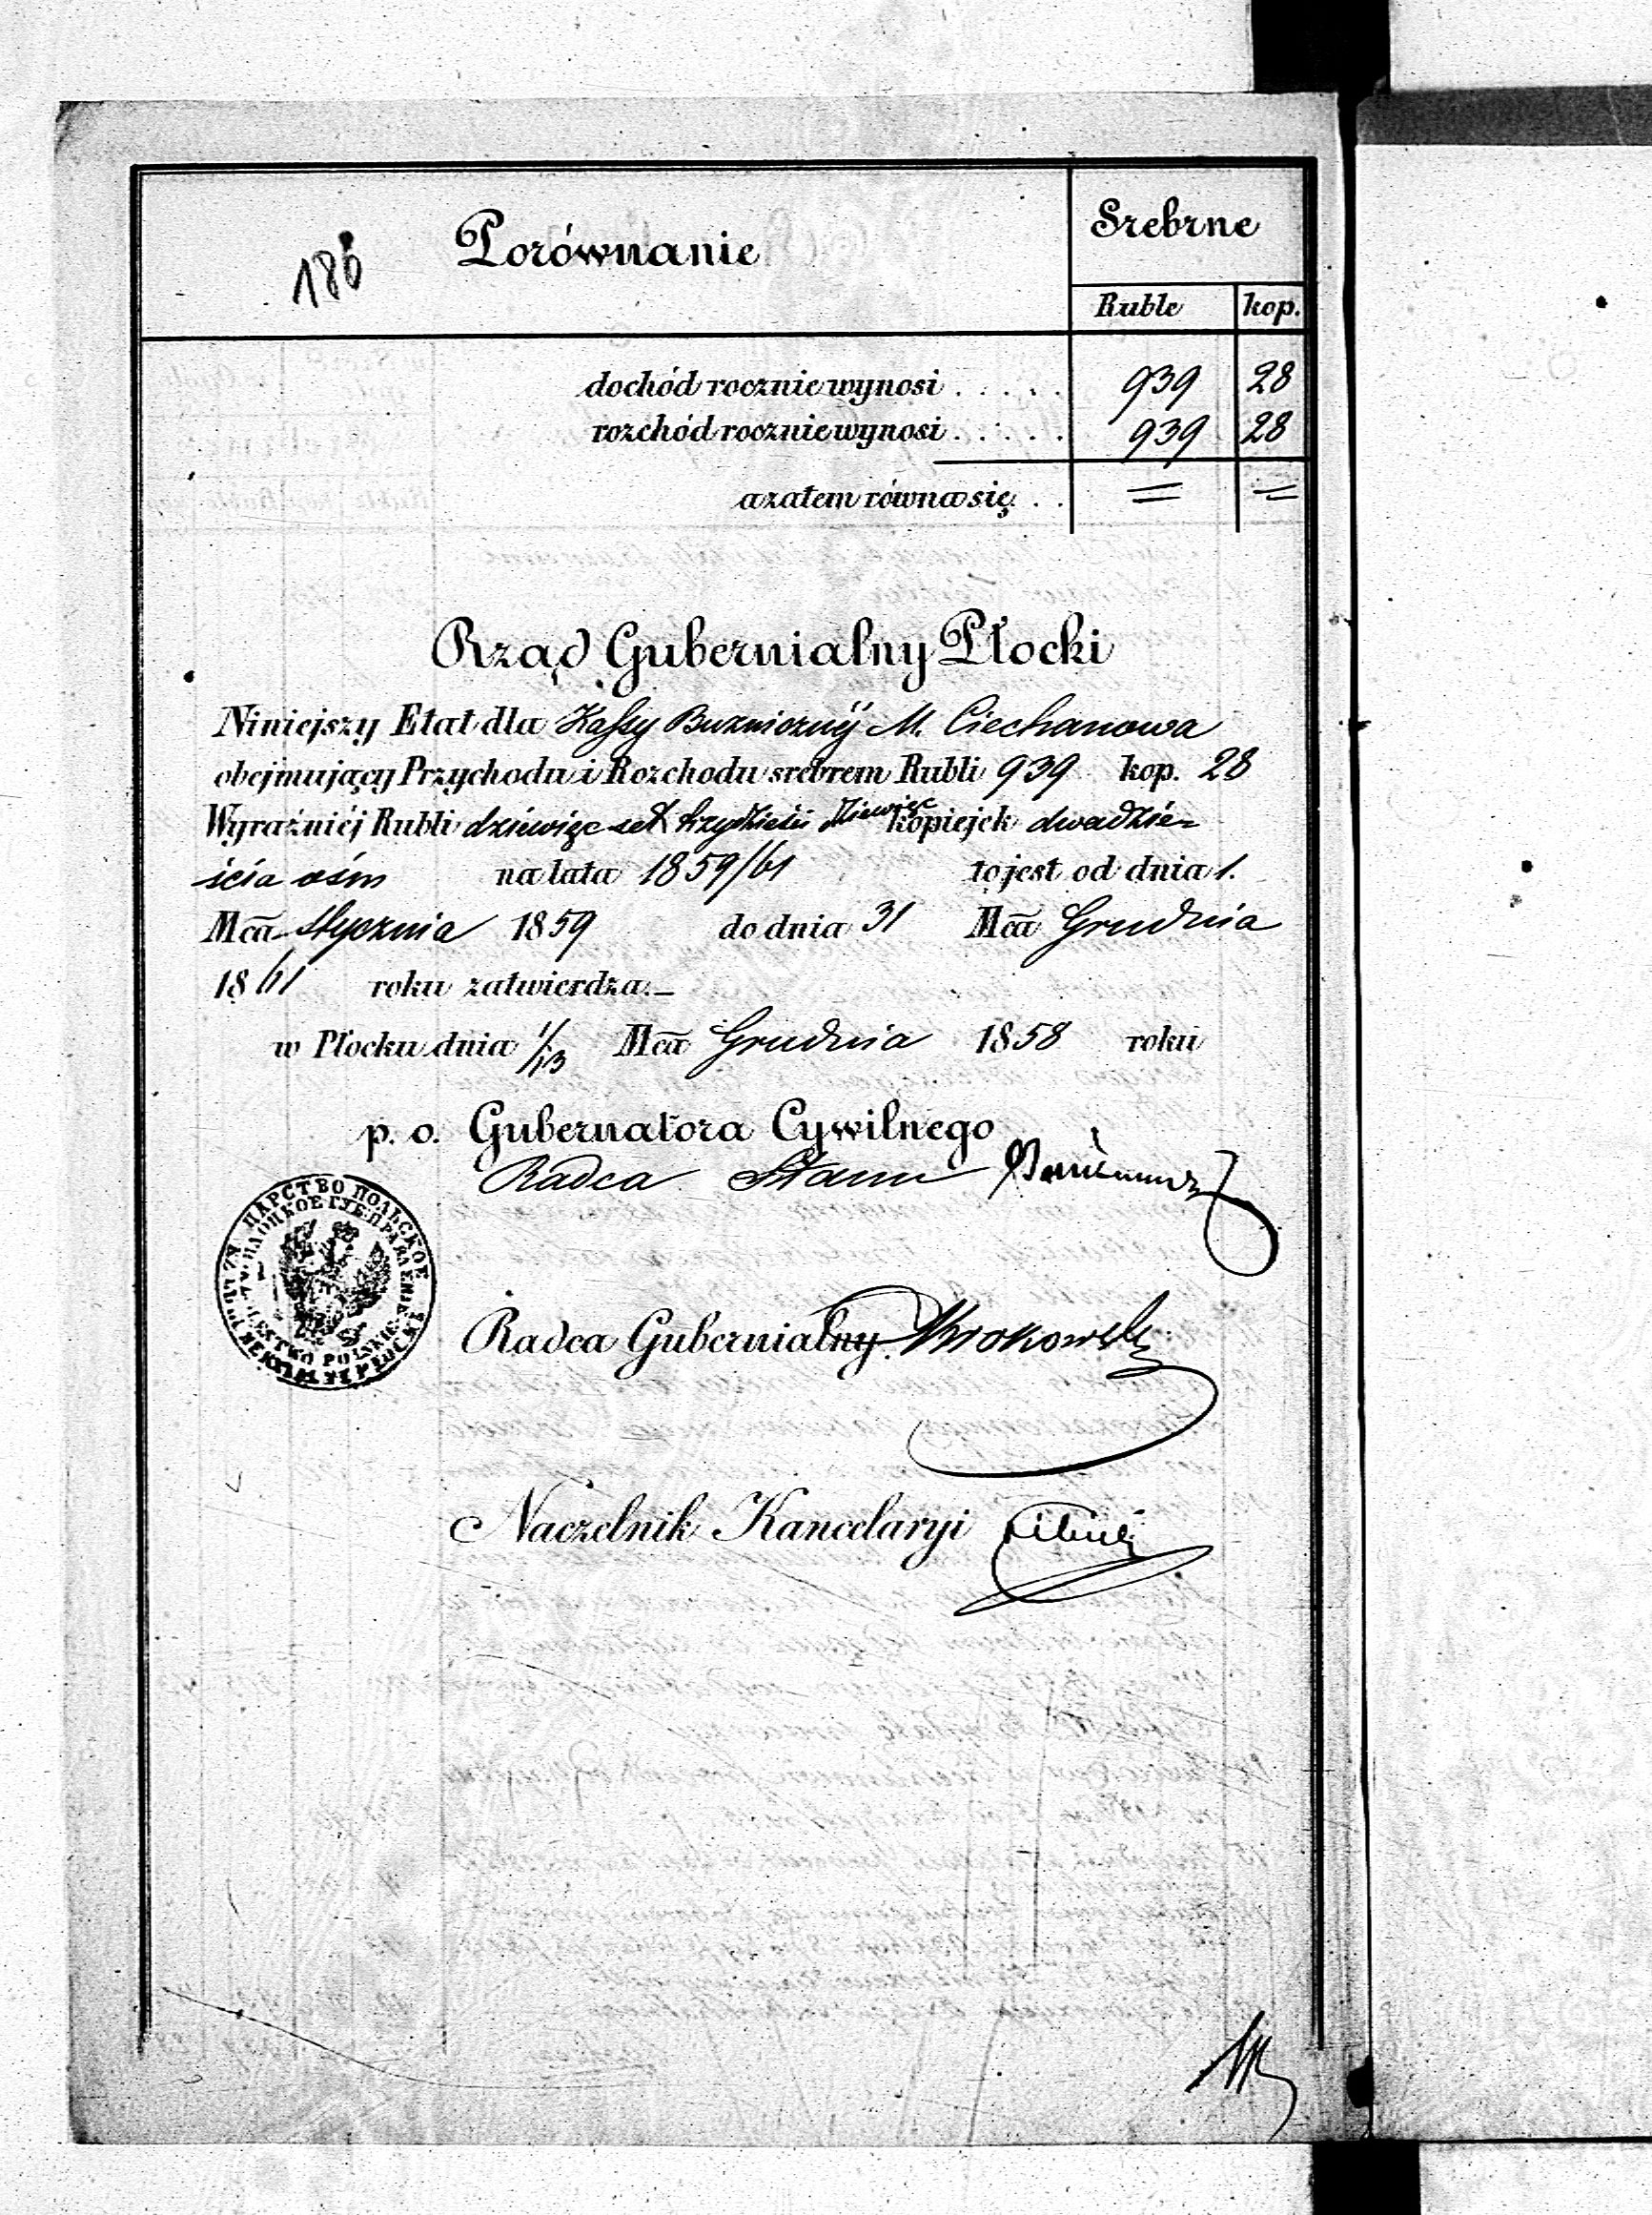 Porównanie
Srebrne
Ruble kop.
dochód rocznie wynosi . . . . . 939 28
rozchód rocznie wynosi . . . . . 939 28
a zatem równa się . . = =
Rząd Gubernialny Płocki
Niniejszy Etat dla Kassy Bużniczny M. Ciechanowa
obejmujący Przychodu i Rozchodu srebrem Rubli 939 kop. 28
Wyraźniéj Rubli dziewięcset trzydzieści dziewięc kopiejek dwadzie=
ścia ośm na lata 1859/61 to jest od dnia 1.
Mca Stycznia 1859 do dnia 31 Mca Grudnia
1861 roku zatwierdza.—
w Płocku dnia 1/13 Mca Grudnia 1858 roku
p. o. Gubernatora Cywilnego
Radca Stanu
ЦАРСТВО ПОЛЬСКОЕ
ПЛОЦКОЕ ГУБ: ПРАВЛЕНІЕ
KRÓLESTWO POLSKIE
Radca Gubernialny
Naczelnik Kancelaryi